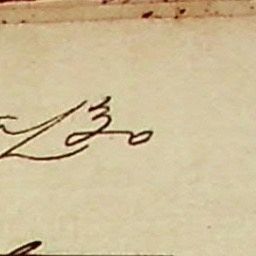 £30